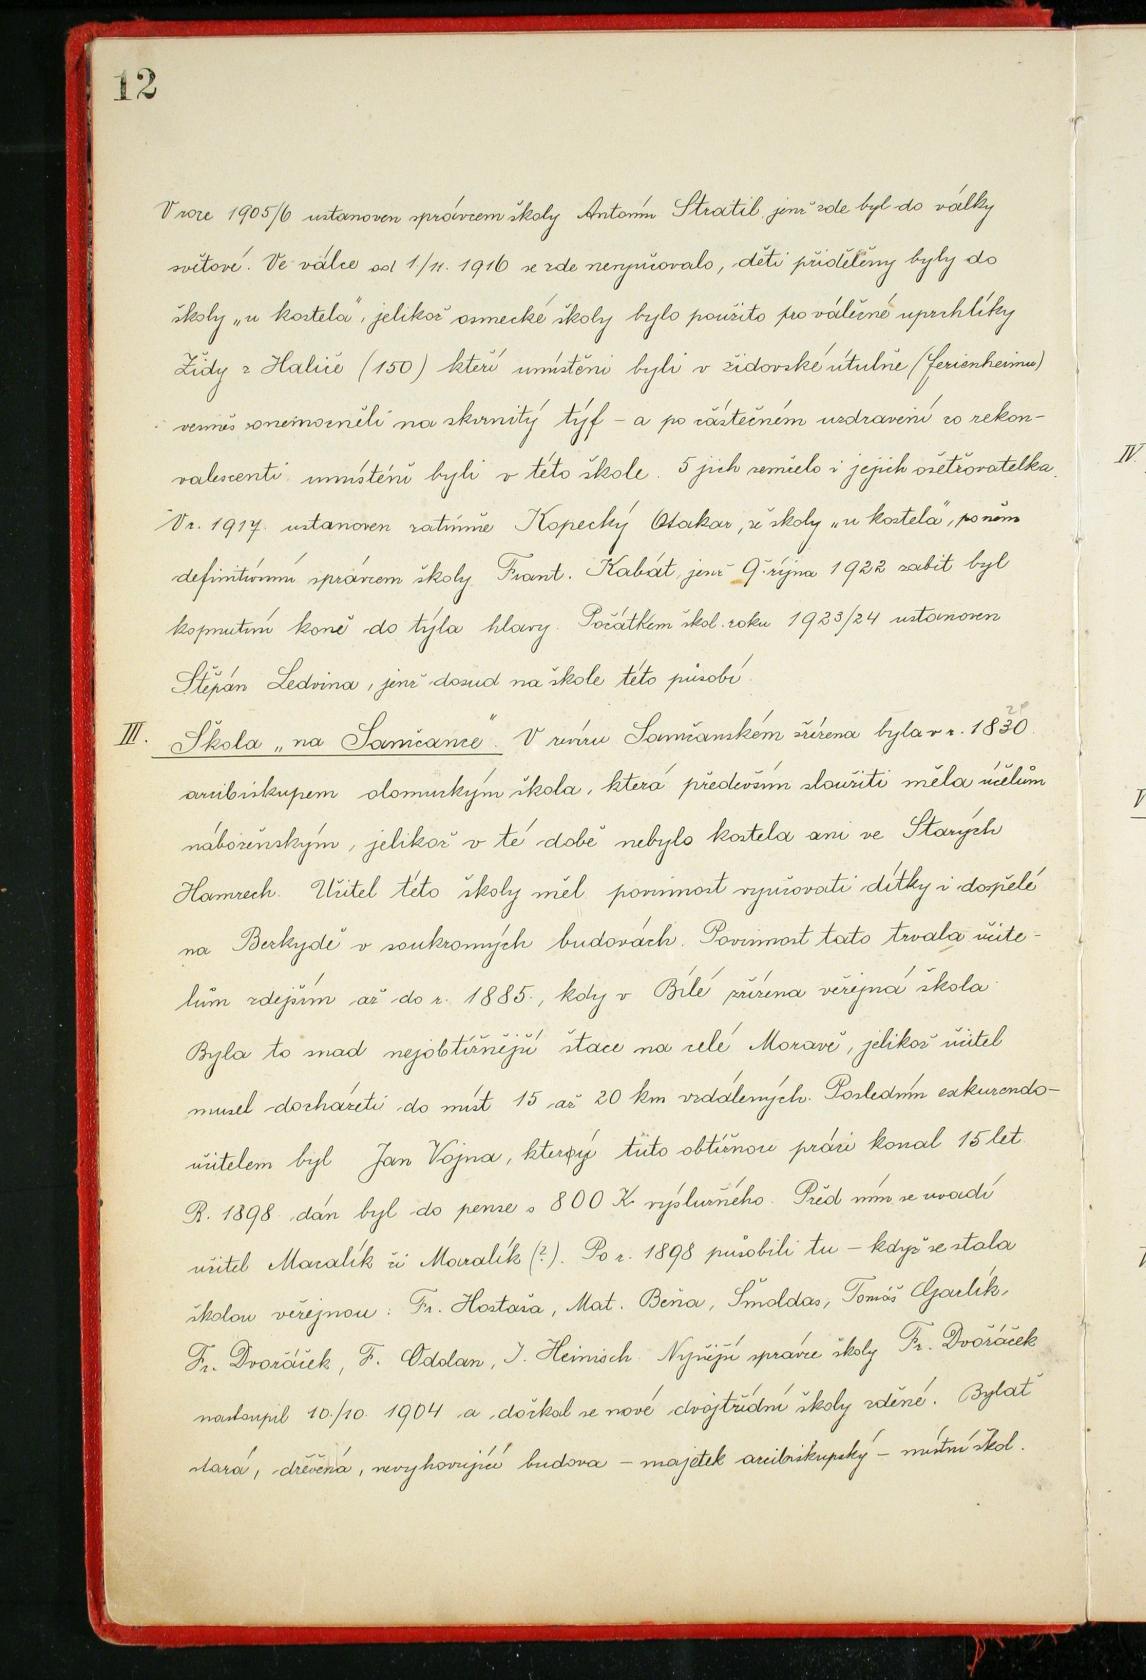 12
V roce 1905/6 ustanoven správcem školy Antonín Stratil, jenž zde byl do války
světové. Ve válce od 1./11. 1916 se zde nevyučovalo, děti přiděleny byly do
školy „u kostela", jelikož osmecké školy bylo použito pro válečné uprchlíky
Židy z Haliče (150) kteří umístěni byli v židovské útulně (ferienheimu)
vesměs onemocněli na skvrnitý týf – a po částečném uzdravení co rekon-
valescenti umístěni byli v této škole. 5 jich zemřelo i jejich ošetřovatelka.
V r. 1917. ustanoven zatímně Kopecký Otakar, ze školy „u kostela", po něm
definitivním správcem školy Frant. Kabát, jenž 9. října 1922 zabit byl
kopnutím koně do týla hlavy. Počátkem škol. roku 1923/24 ustanoven
Štěpán Ledvina, jenž dosud na škole této působí.
III. Škola „na Samčance". V revíru Samčanském zřízena byla v r. 1830
arcibiskupem olomuckým škola, která především sloužiti měla účelům
náboženským, jelikož v té době nebylo kostela ani ve Starých
Hamrech. Učitel této školy měl povinnost vyučovati dítky i dospělé
na Berkydě v soukromých budovách. Povinnost tato trvala učite-
lům zdejším až do r. 1885., kdy v Bílé zřízena veřejná škola
Byla to snad nejobtížnější štace na celé Moravě, jelikož učitel
musel docházeti do míst 15 až 20 km vzdálených. Posledním exkurendo-
učitelem byl Jan Vojna, který tuto obtížnou práci konal 15 let
R. 1898 dán byl do pense s 800 K výslužného. Před ním se uvádí
učitel Macalík či Mocralík (?). Po r. 1898 působili tu – když se stala
školou veřejnou: Fr. Hostaša, Mat. Beňa, Šmoldas, Tomáš Garlík,
Fr. Dvořáček, F. Oddan, J. Heinisch. Nynější správce školy Fr. Dvořáček
nastoupil 10./10. 1904 a dočkal se nové dvojtřídní školy zděné. Bylať
stará, dřevěná, nevyhovující budova – majetek arcibiskupský – místní škol.
IV.